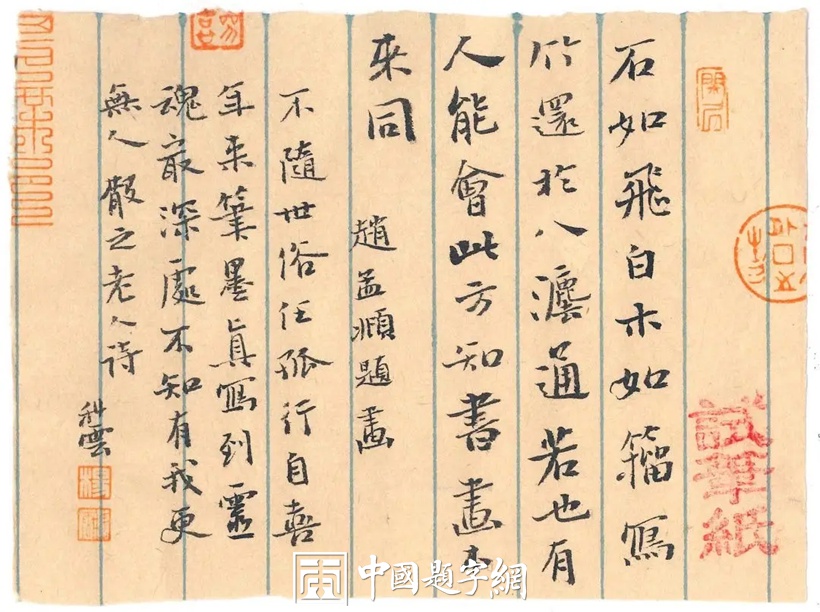 試筆紙
石如飛白木如籀寫
竹還於八灋通若也有
人能會此方知書畫本
來同
趙孟頫題畫
不隨世俗任孤行自喜
年来筆墨眞寫到靈
魂最深處不知有我更
無人散之老人詩
科雲
中國題字網